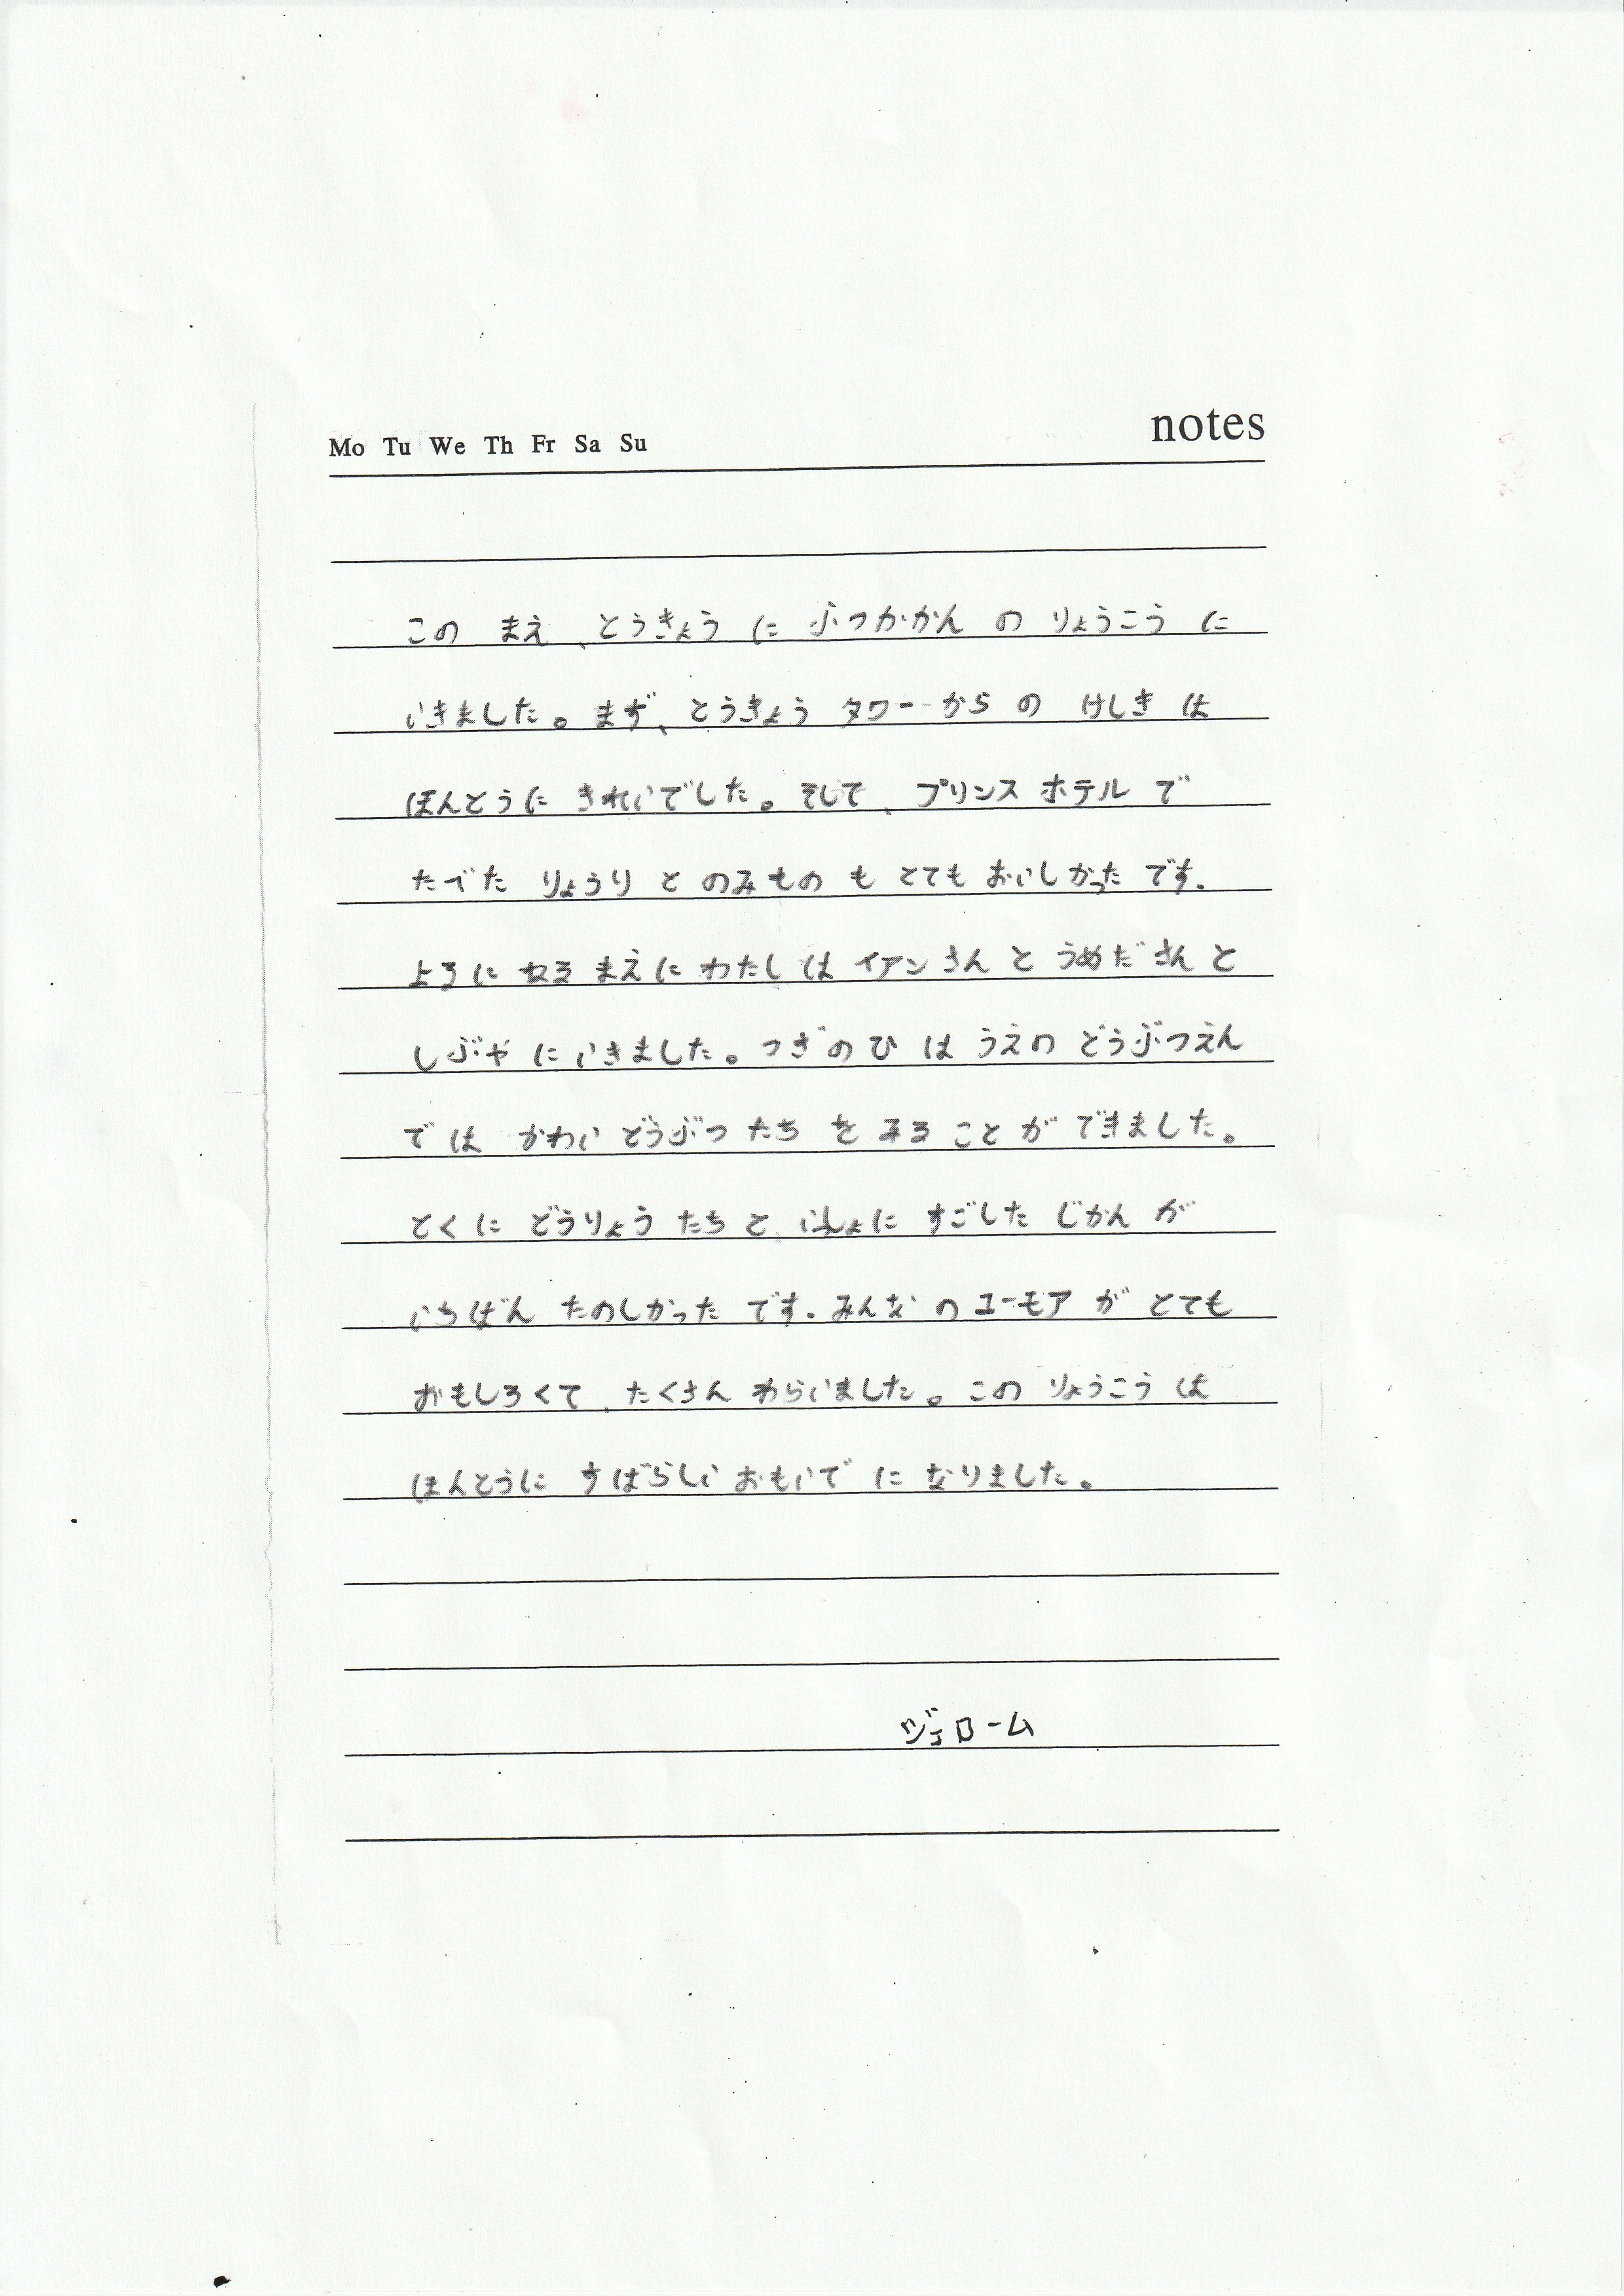 Mo Tu We Th Fr Sa Su notes
このまえ、とうきょうにぶつかかんのりょうこうに
いきました。まず、とうきょうタワーからのけしきは
ほんとうにきれいでした。そして、プリンスホテルで
たべたりょうりとのみものもとてもおいしかったです.
よるにねるまえにわたしはイアンさんとうめださんと
しぶやにいきました。つぎのひはうえのどうぶつえん
ではかわいどうぶつたちをみることができました。
とくにどうりょうたちといっしょにすごしたじかんが
いちばんたのしかったです.みんなのユーモアがとても
おもしろくて、たくさんわらいました。このりょうこうは
ほんとうにすばらしいおもいでになりました。
ジェローム